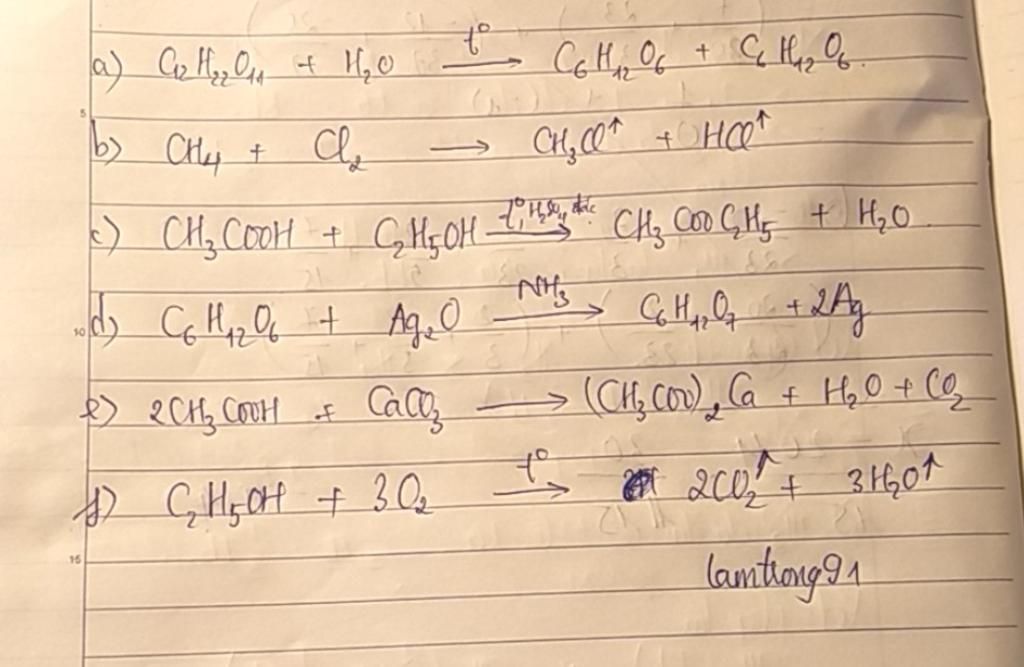 a) C₁₂H₂₂O₁₁ + H₂O —t°→ C₆H₁₂O₆ + C₆H₁₂O₆.
5
b) CH₄ + Cl₂ → CH₃Cl↑ + HCl↑
c) CH₃COOH + C₂H₅OH —t°, H₂SO₄ đặc→ CH₃COOC₂H₅ + H₂O
10 d) C₆H₁₂O₆ + Ag₂O —NH₃→ C₆H₁₂O₇ + 2Ag
e) 2CH₃COOH + CaCO₃ → (CH₃COO)₂Ca + H₂O + CO₂
f) C₂H₅OH + 3O₂ —t°→ 2CO₂↑ + 3H₂O↑
15
lamtrong91